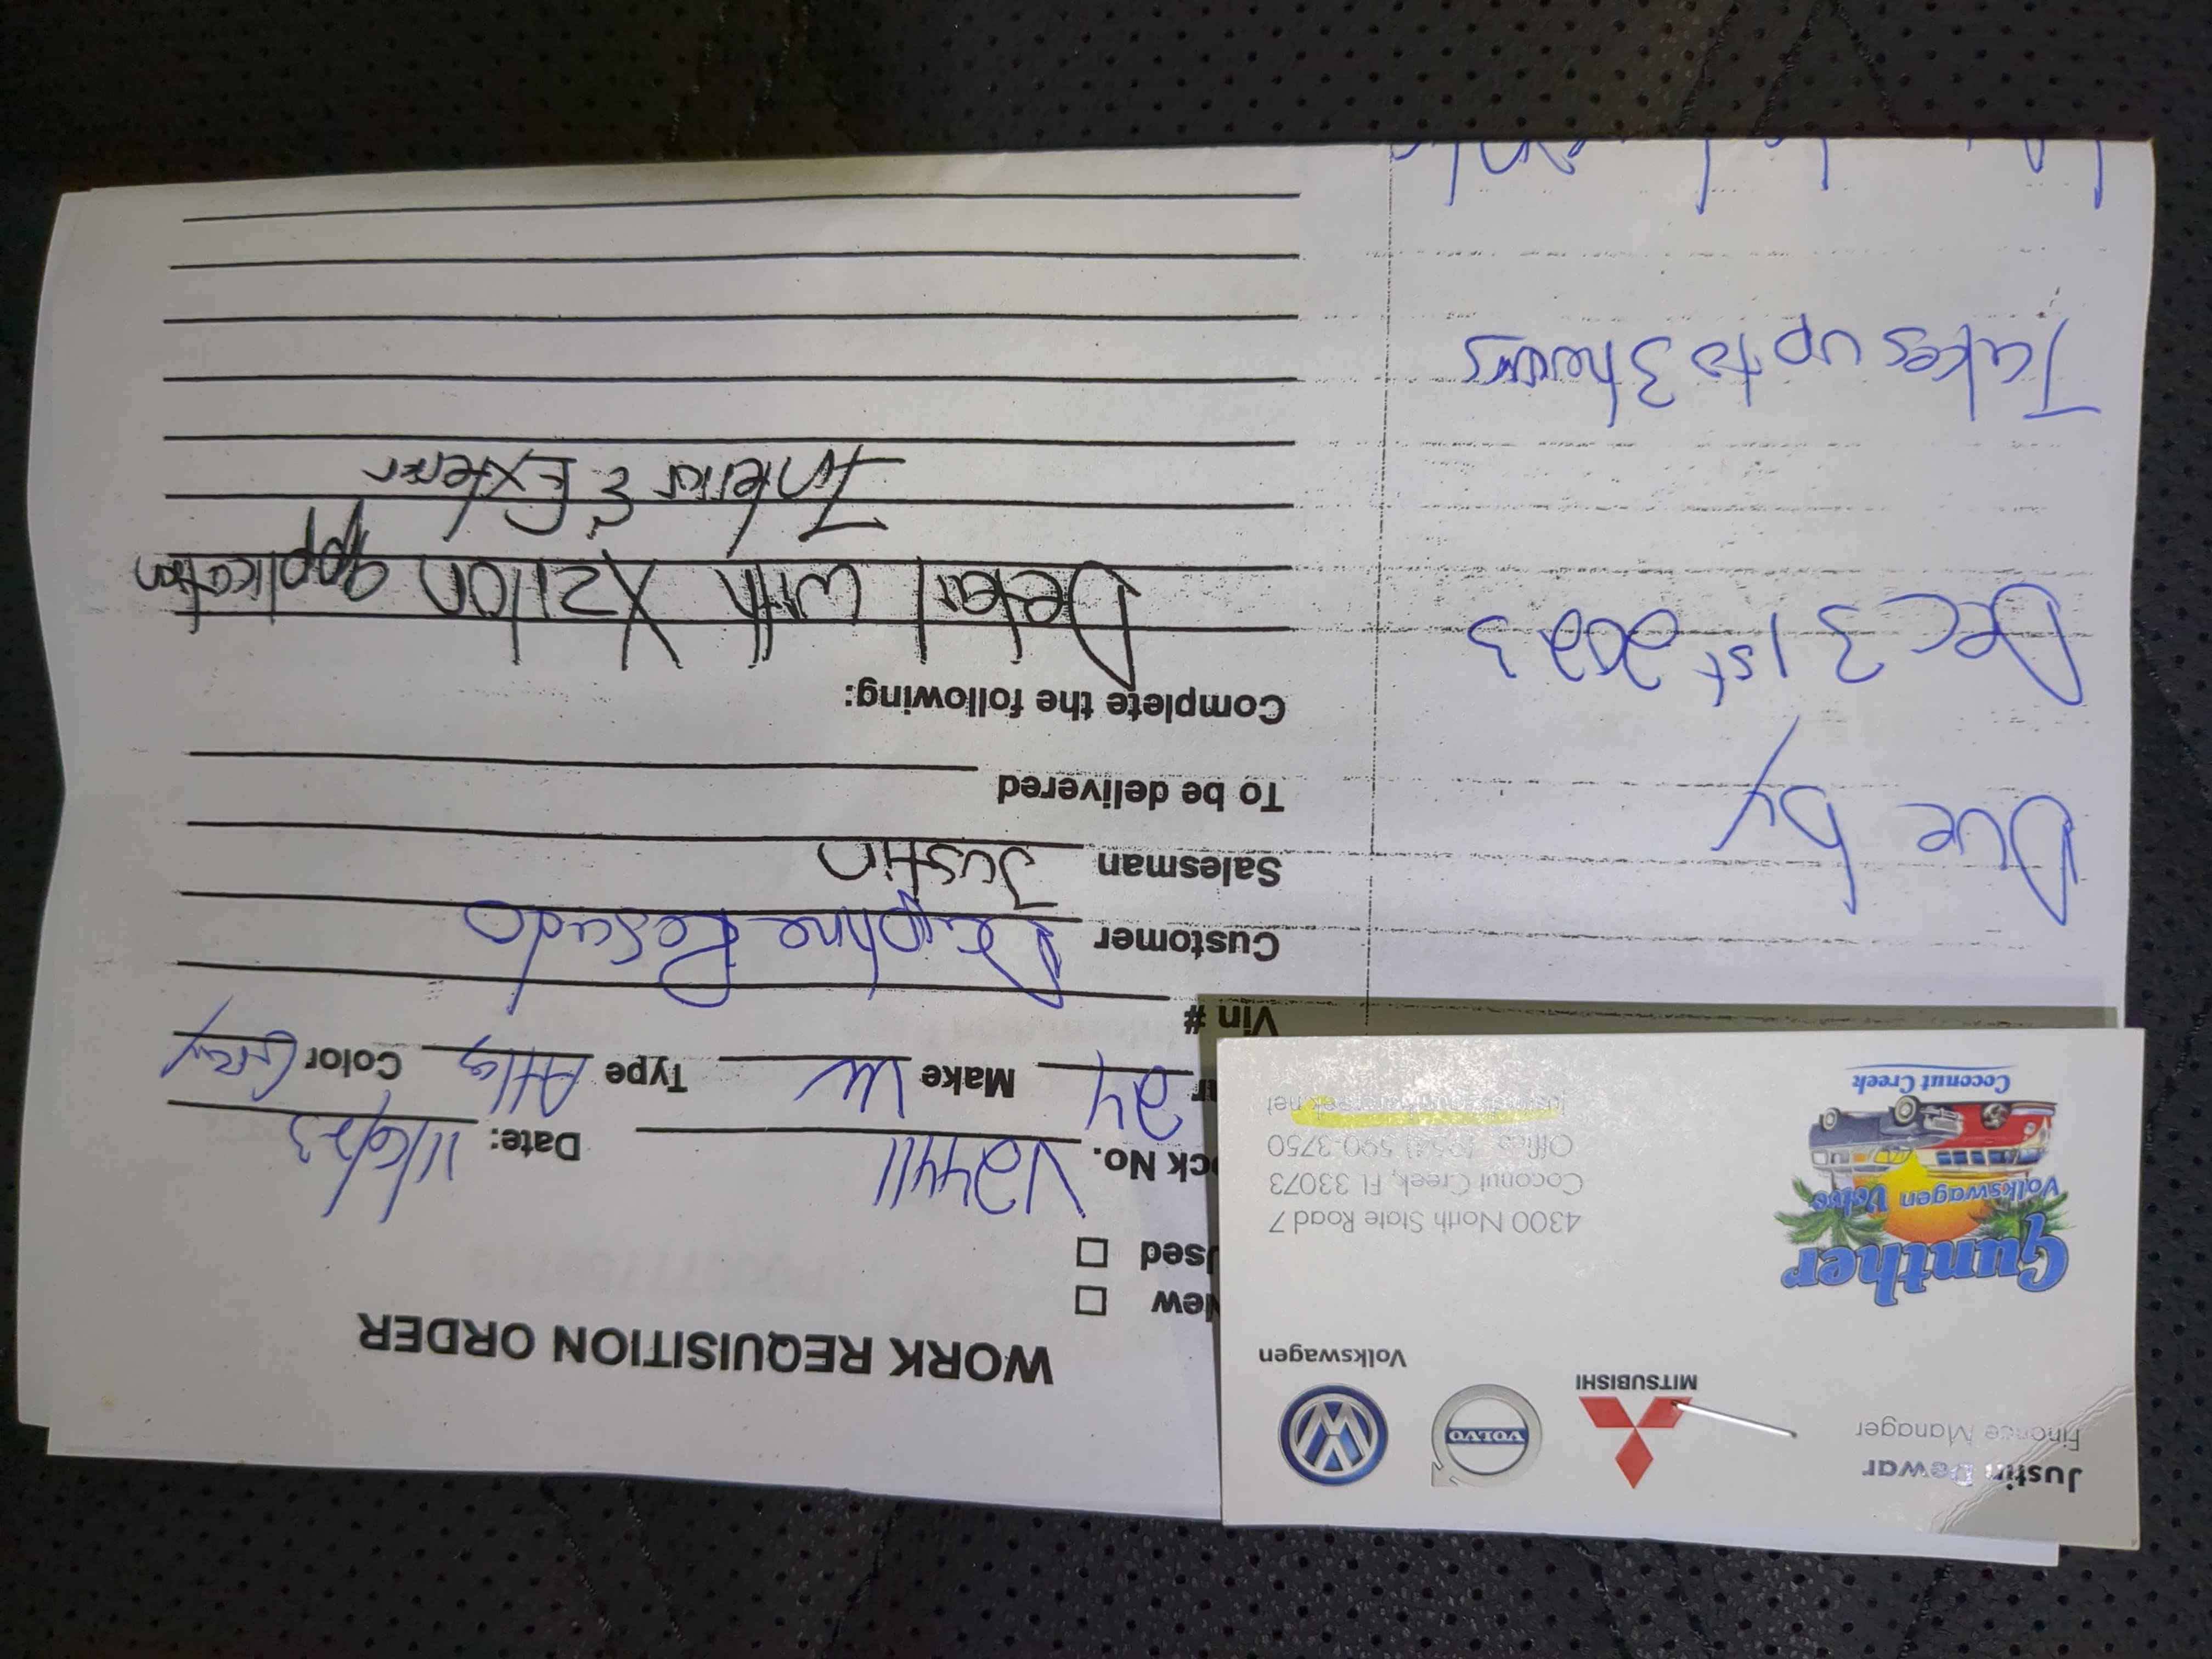 Justin Dewar
Finance Manager
MITSUBISHI
VOLVO
Volkswagen
Gunther
Volkswagen Volvo
Coconut Creek
4300 North State Road 7
Coconut Creek, Fl 33073
Office (954) 590-3750
WORK REQUISITION ORDER
New
Used
ck No. V24411 Date: 11/6/23
24 Make VW Type Atlas Color Grey
Vin #
Customer Daphne Rosado
Salesman Justin
To be delivered
Complete the following:
Detail with Xzilon application
Interior & Exterior
Due by
Dec 31st 2023
Takes up to 3 hours